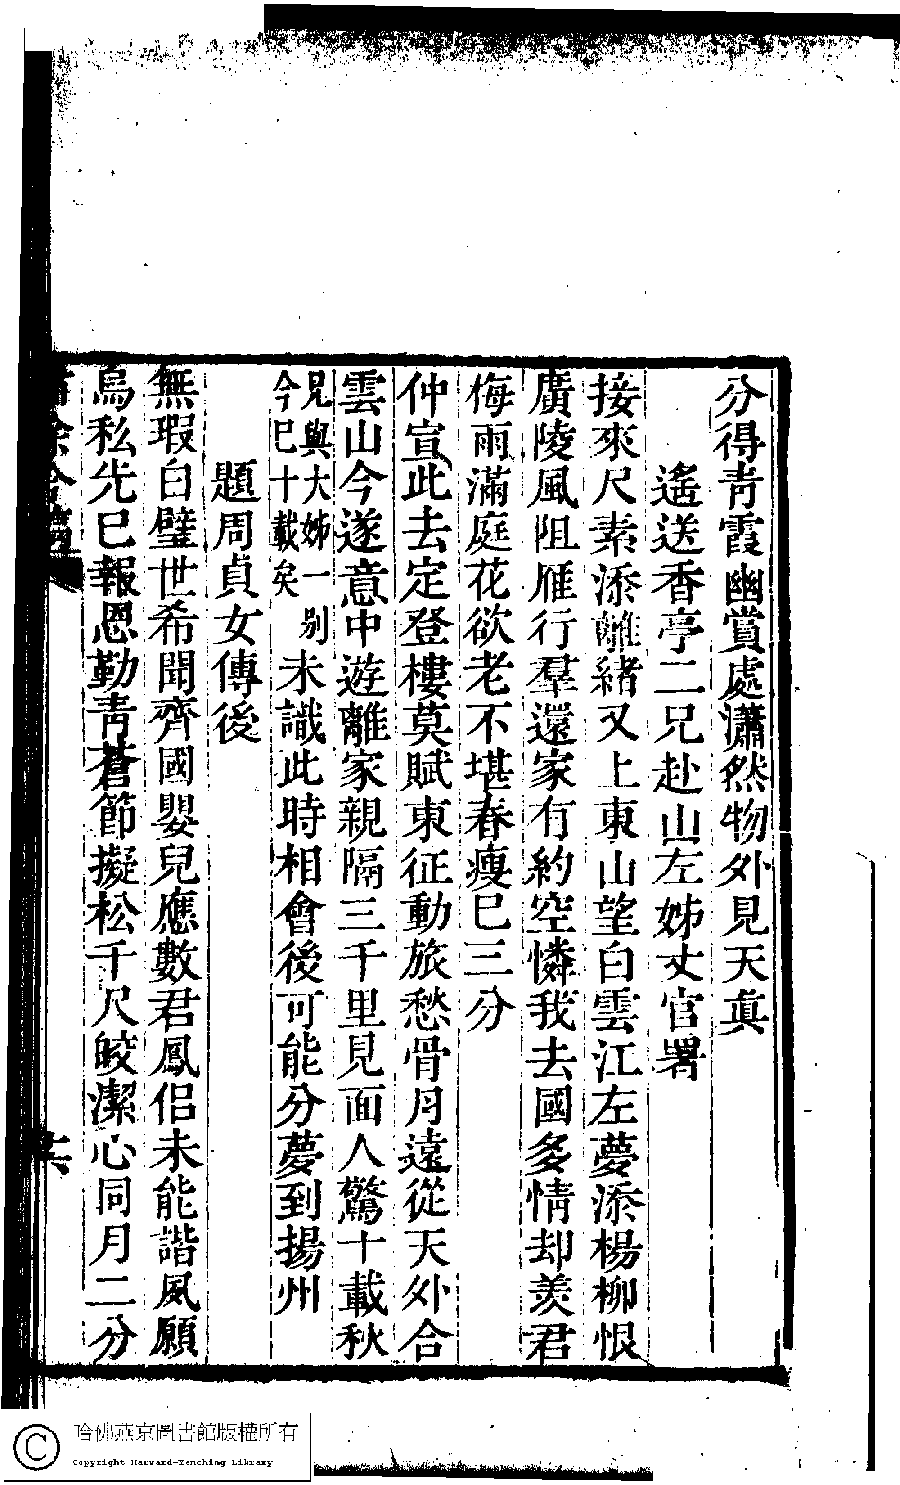 分得靑霞幽賞處瀟然物外見天眞
遙送香亭二兄赴山左姊丈官署
接來尺素添離緒又上東山望白雲江左夢添楊柳恨
廣陵風阻雁行羣還家有約空憐我去國多情却羨君
梅雨滿庭花欲老不堪春瘦巳三分
仲宣此去定登樓莫賦東征動旅愁骨月遠從天外合
雲山今遂意中遊離家親隔三千里見面人驚十載秋
兄與大姊一别
今巳十載矣
未識此時相會後可能分夢到揚州
題周貞女傳後
無瑕白璧世希聞齊國嬰兒應數君鳳侶未能諧夙願
烏私先巳報恩勤靑蒼節擬松千尺皎潔心同月二分
六
哈佛燕京圖書館版權所有
Copyright Harvard-Yenching Library